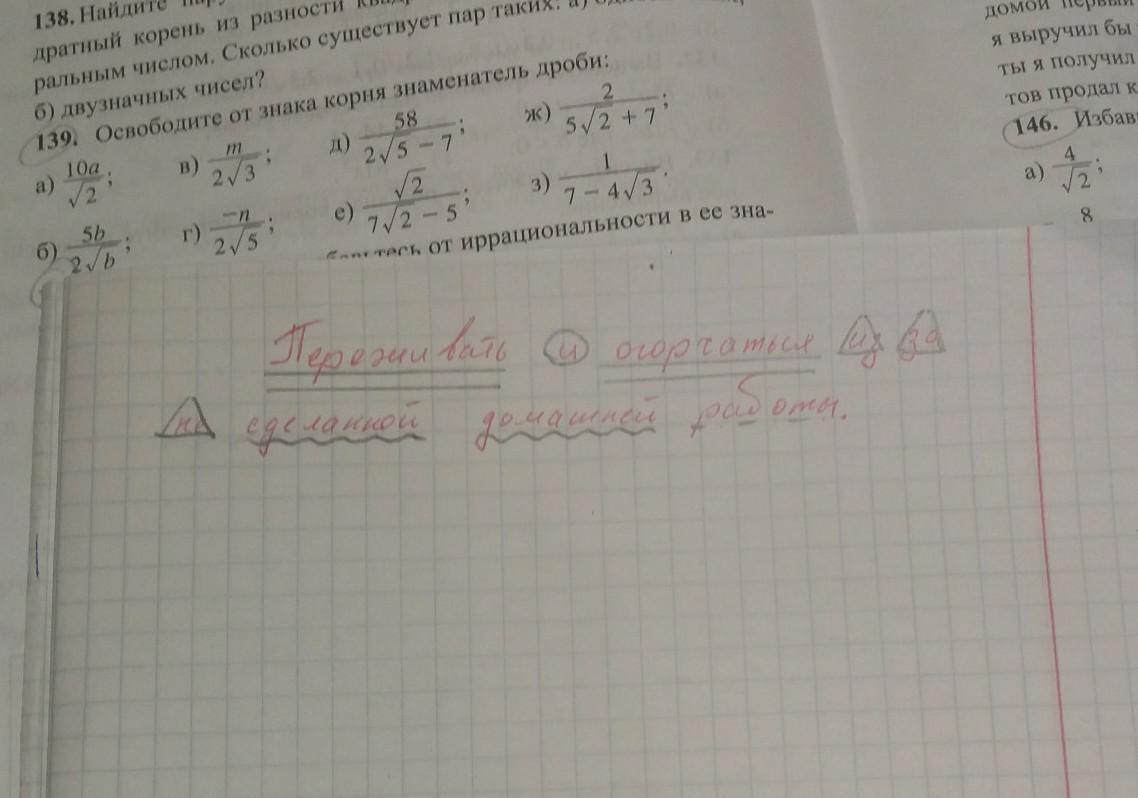 138. Найдите
дратный корень из разности
ральным числом. Сколько существует пар таких: а)
б) двузначных чисел?
139. Освободите от знака корня знаменатель дроби:
а) 10a/√2; в) m/2√3; д) 58/(2√5 − 7); ж) 2/(5√2 + 7);
б) 5b/2√b; г) −n/2√5; е) √2/(7√2 − 5); з) 1/(7 − 4√3).
от иррациональности в ее зна-
домой
я выручил бы
ты я получил
тов продал к
146. Избав
а) 4/√2;
8
Переживать и огорчаться из за
не сделанной домашней работы.